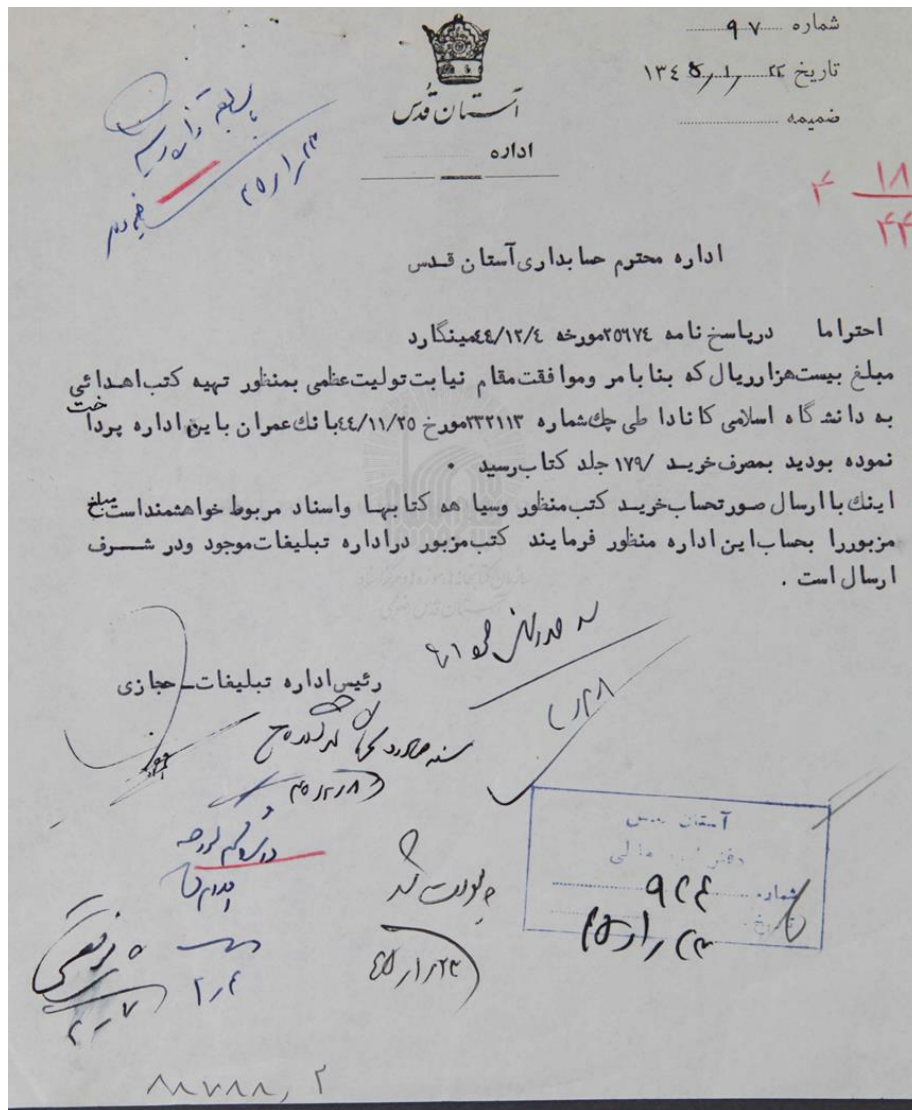 شماره ۹۷
تاریخ ۲۲/۱/۱۳۴۵
ضمیمه
آستان قدس
اداره
۱۸
۴
۴۴
۲۳/۱/۴۵
اداره محترم حسابداری آستان قدس
احتراما درپاسخ نامه ۲۵۶۷۴ مورخه ۴۴/۱۲/۴ مینگارد
مبلغ بیست هزار ریال که بنا بامر وموافقت مقام نیابت تولیت عظمی بمنظور تهیه کتب اهدائی
به دانشگاه اسلامی کانادا طی چك شماره ۲۳۲۱۱۳ مورخ ۴۴/۱۱/۲۵ بانك عمران باین اداره پرداخت
نموده بودید بمصرف خرید ۱۷۹/ جلد کتاب رسید .
اینك با ارسال صورتحساب خرید کتب منظور وسیاهه کتابها واسناد مربوط خواهشمند است مبلغ
مزبور را بحساب این اداره منظور فرمایند کتب مزبور دراداره تبلیغات موجود ودر شرف
ارسال است .
رئیس اداره تبلیغات - حجازی
۴۵/۲/۸
آستان قدس
دفتر مالی
شماره ۹۲۴
تاریخ ۲۳/۱/۴۵
۲۳/۱/۴۵
۸۸۷۸۸/۲